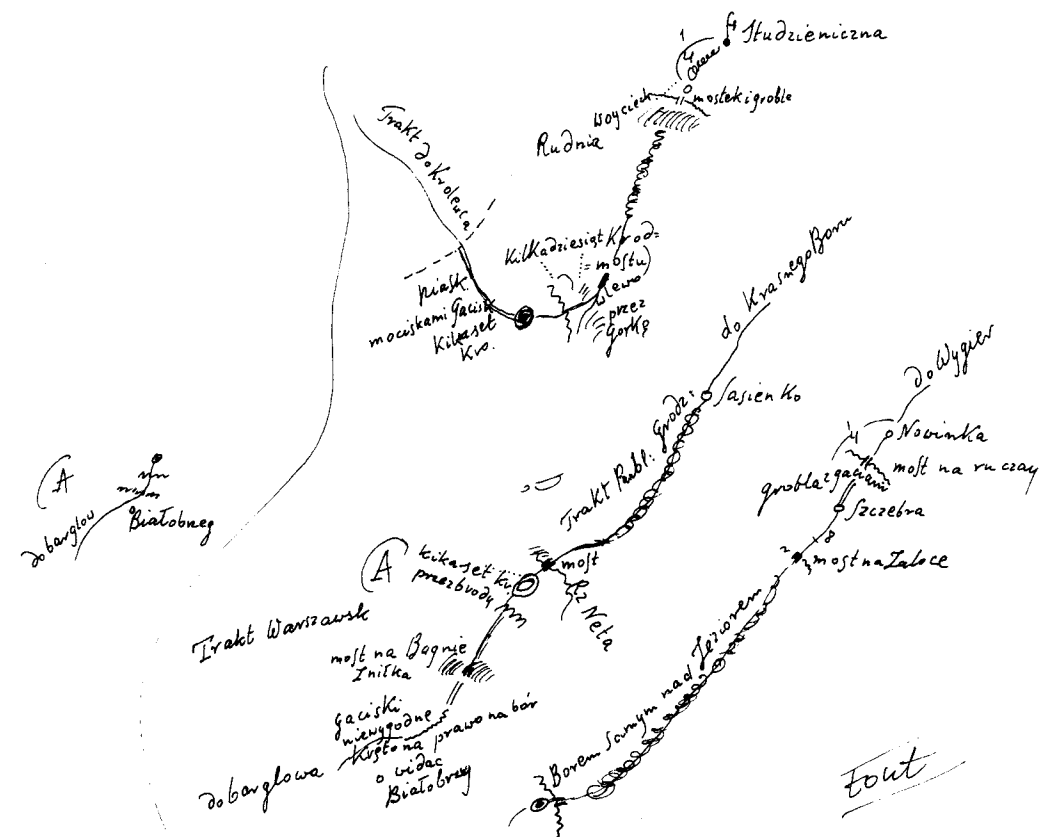 Studzieniczna
1
4
Woyciech
mostek i groble
Rudnia
Trakt do Krolewca
Kilkadziesiąt Krod=
=mostu)
wlewo
przez
Gorkę
piask.
mociskami Gacisk
Kilkaset
Kro.
do Krasnego Boru
Sasienko
Trakt Publ: Grodz:
do Wygier
4
Nowinka
most na ruczay
grobla z gaciami
Szczebra
8
2
most na Zaloce
(A
do barglow
Białobrzeg
(A
kikaset kr.
przez brody
most
Rz Neta
Trakt Warszawsk
most na Bagnie
Zniłka
gaciski
niewygodne
Kręto na prawo na bór
do barglowa
o widac
Białobrzeg
Borem Samym nad Jeziorem